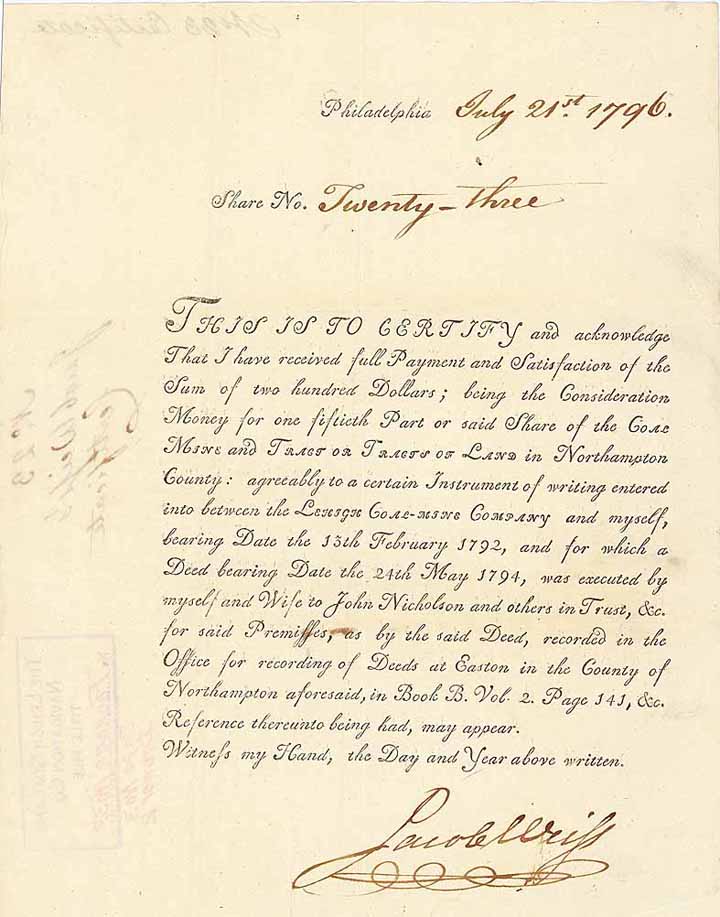 Philadelphia July 21st. 1796.
Share No. Twenty-three
THIS IS TO CERTIFY and acknowledge
That I have received full Payment and Satisfaction of the
Sum of two hundred Dollars; being the Consideration
Money for one fiftieth Part or said Share of the COAL
MINE and TRACT OR TRACTS OF LAND in Northampton
County: agreeably to a certain Instrument of writing entered
into between the LEHIGH COAL-MINE COMPANY and myself,
bearing Date the 13th February 1792, and for which a
Deed bearing Date the 24th May 1794, was executed by
myself and Wife to John Nicholson and others in Trust, &c.
for said Premisses, as by the said Deed, recorded in the
Office for recording of Deeds at Easton in the County of
Northampton aforesaid, in Book B. Vol. 2. Page 141, &c.
Reference thereunto being had, may appear.
Witness my Hand, the Day and Year above written.
Jacob Weiss